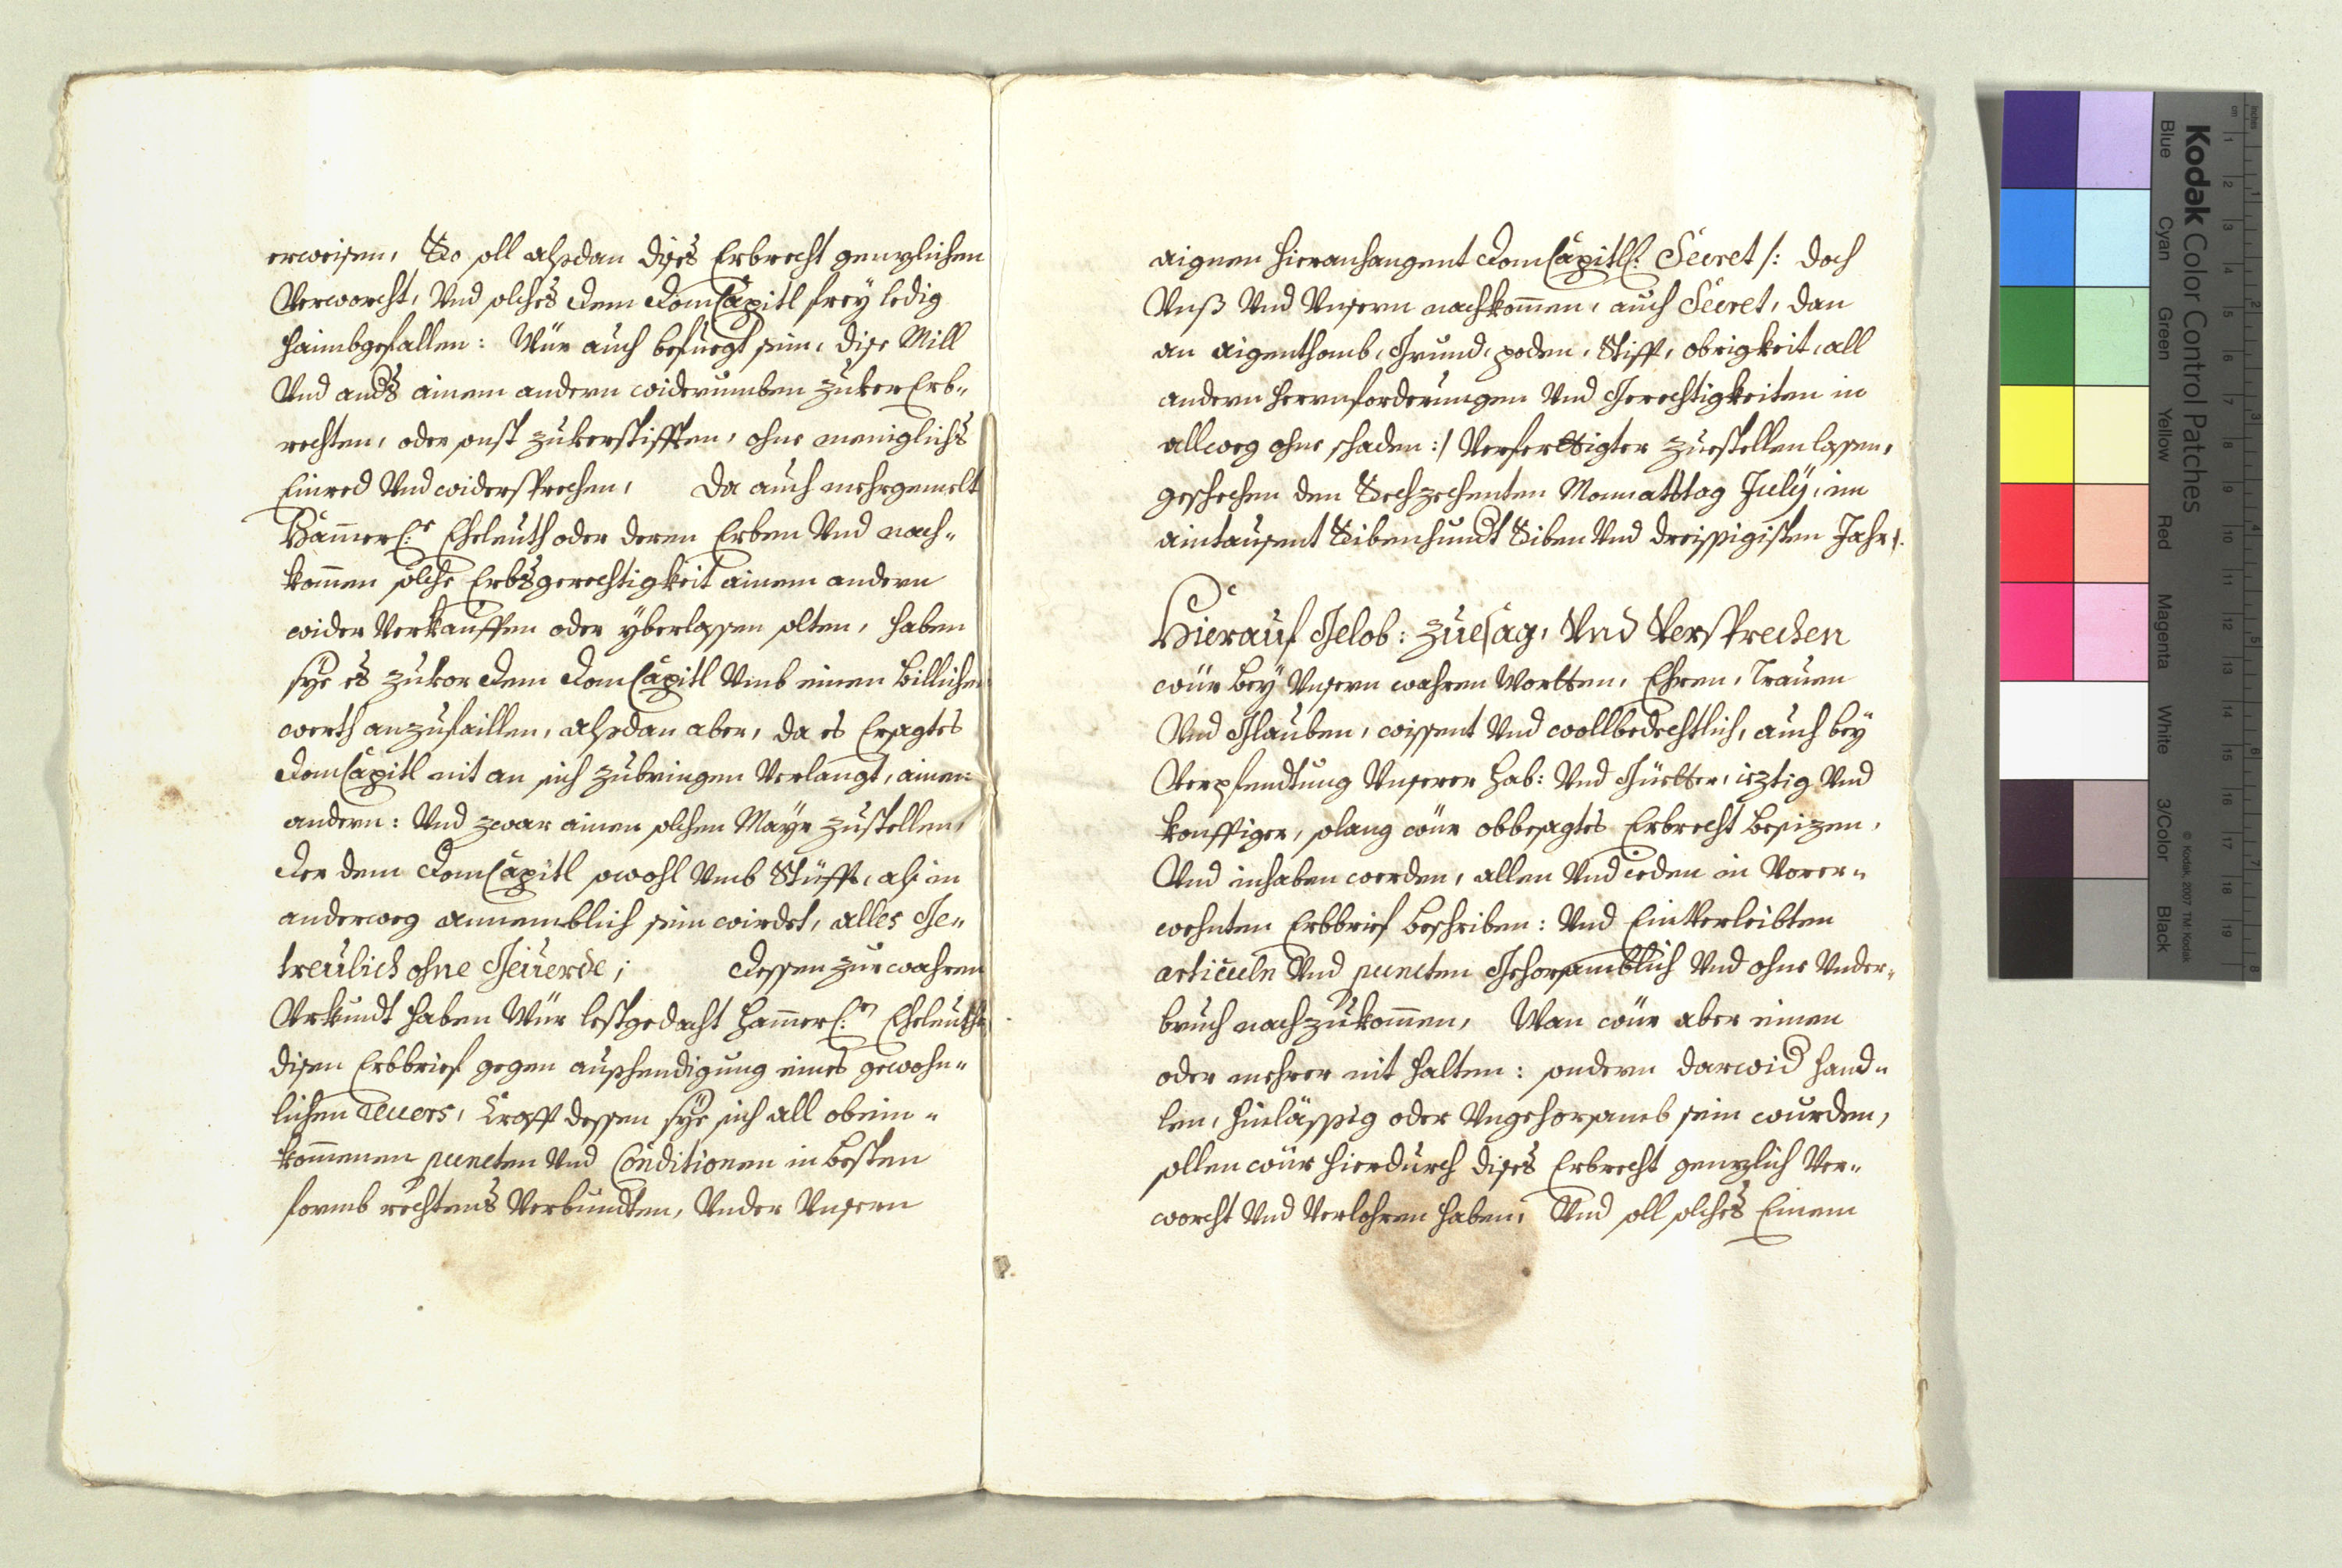 erweisen, So soll alßdan dises Erbrecht genzlichen
Verworcht, Vnd solches dem DomCapitl frey ledig
haimbgefallen: Wür auch befuegt sein, dise Mill
Vnd ands ainem andern widerumben zuuerErb-
rechten, oder sonst zuuerstifften, ohne meniglichs
Einred Vnd widersprechen, Da auch mehrgemelt
Hammerl: Eheleuth oder deren Erben Vnd nach-
kommen solche Erbsgerechtigkeit ainem andern
wider Verkauffen oder yberlassen solten, haben
sye es zuuor dem DomCapitl Vmb einen billichen
werth anzufaillen, alßdan aber, da es Ersagtes
DomCapitl nit an sich zubringen Verlangt, ainen
andern: Vnd zwar ainen solchen Mayr zustellen,
der dem DomCapitl sowohl Vmb Stüfft, alß in
anderweg annemblich sein wirdet, alles Ge-
treulich ohne Geuerde; dessen zur wahren
Vrkundt haben Wür lestgedacht Hammerl:en Eheleuthen
disen Erbbrief gegen außhendigung eines gewohn-
lichen Reuers, Krafft dessen sye sich all obein-
kommenen puncten Vnd Conditionen in besten
formb rechtens Verbundten, Vnder Vnsern
aignen hieranhangent DomCapitl: Secret /: doch
Vnß Vnd Vnsern nachkommen, auch Secret, dan
an aigenthomb, Grund, poden, Stifft, obrigkeit, all
andern herrnforderungen Vnd Gerechtigkeiten in
allweg ohne schaden :/ Verferttigter zuestellen lassen,
geschechen den Sechzechenten Monnattag July, im
aintausent Sibenhundt Siben Vnd dreissigisten Jahr.
Hierauf Gelob: zuesag, Vnd Versprechen
wür bey Vnsern wahren Wortten, Ehren, Trauen
Vnd Glauben, wissent Vnd wollbedechtlich, auch bey
Verpfendtung Vnserer Hab: Vnd Güetter, ieztig Vnd
konfftiger, solang wür obbesagtes Erbrecht besizen,
Vnd inhaben werden, allen Vnd ieden in Vorer-
wehnten Erbbrief beschriben: Vnd EinVerleibten
articuln Vnd puncten Gehorsamblich Vnd ohne Vnder-
bruch nachzukommen, Wan wür aber einen
oder mehrer nit halten: sondern darwid hand-
len, hinlässsig oder Vngehorsamb sein wurden,
sollen wür hierdurch dises Erbrecht genzlich Ver-
worcht Vnd Verlohren haben, Vnd soll solches Einem
Kodak Color Control Patches
Blue Cyan Green Yellow Red Magenta White 3/Color Black
© Kodak, 2007 TM: Kodak